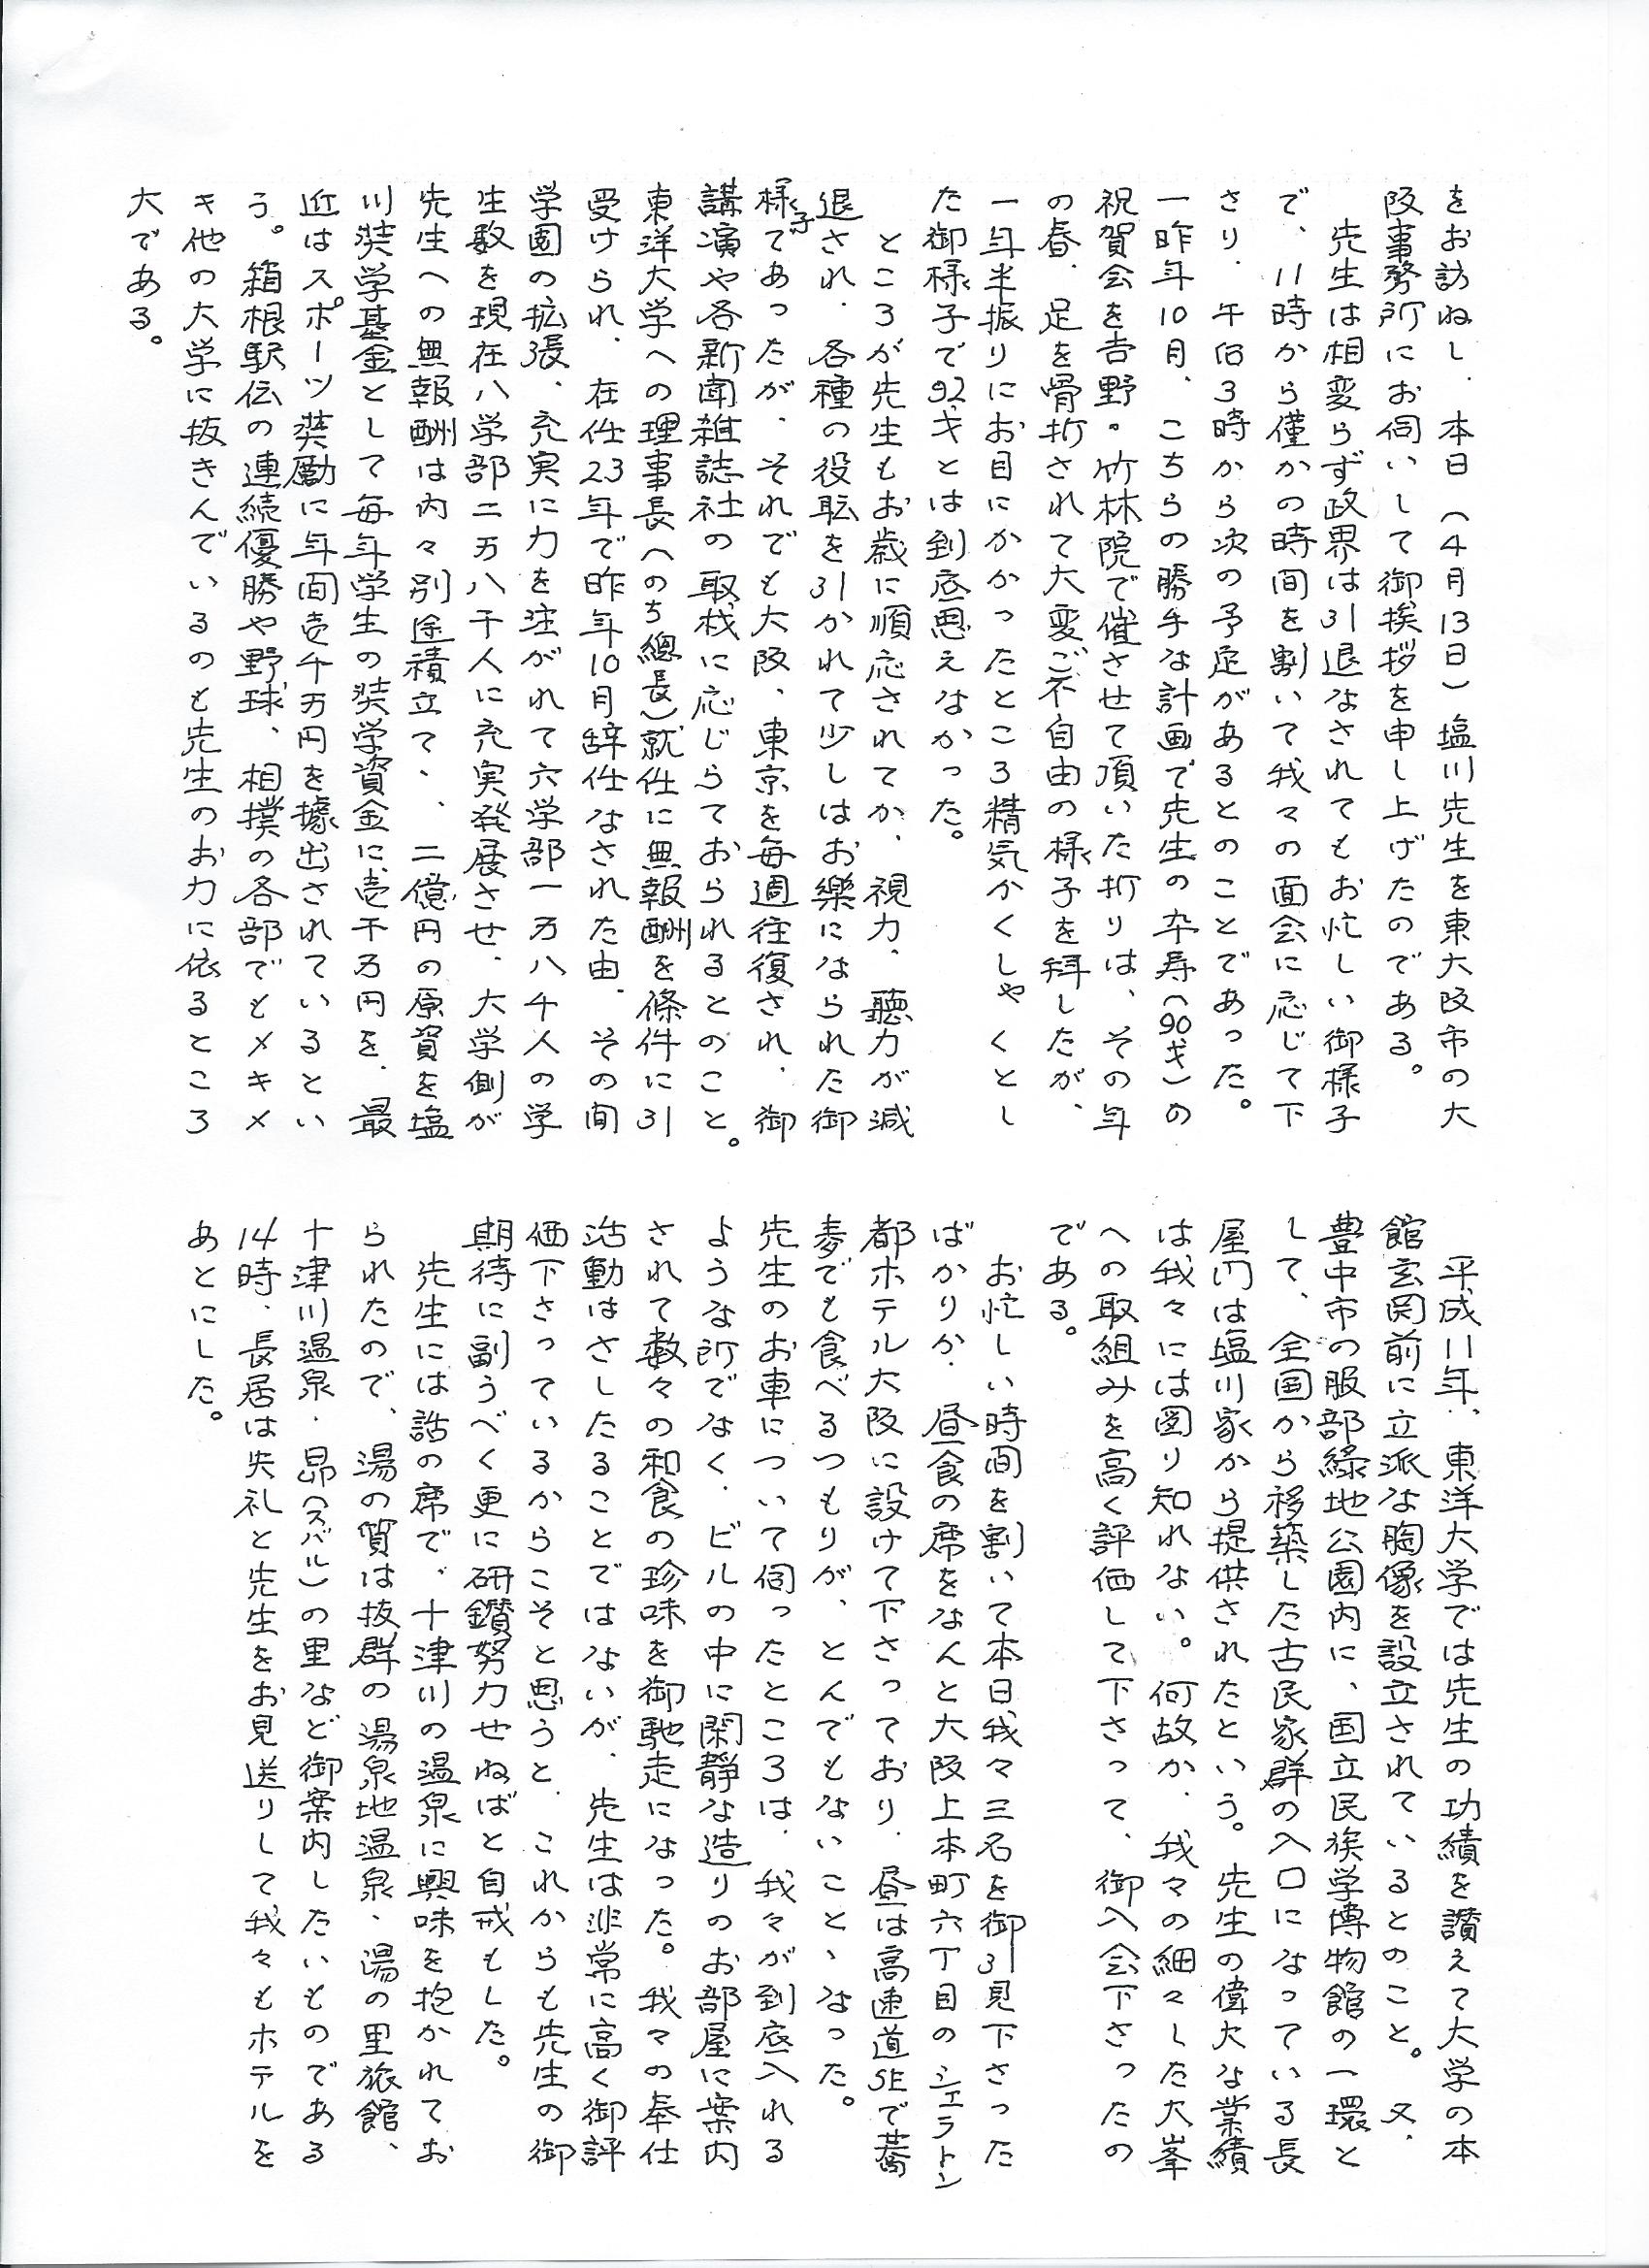 をお訪ねし、本日（4月13日）塩川先生を東大阪市の大
阪事務所にお伺いして御挨拶を申し上げたのである。
先生は相変らず政界は引退なされてもお忙しい御様子
で、11時から僅かの時間を割いて我々の面会に応じて下
さり、午后3時から次の予定があるとのことであった。
一昨年10月、こちらの勝手な計画で先生の卒寿（90才）の
祝賀会を吉野・竹林院で催させて頂いた折りは、その年
の春、足を骨折されて大変ご不自由の様子を拝したが、
一年半振りにお目にかかったところ精気かくしゃくとし
た御様子で92才とは到底思えなかった。
ところが先生もお歳に順応されてか、視力、聴力が減
退され、各種の役職を引かれて少しはお楽になられた御
様子であったが、それでも大阪、東京を毎週往復され、御
講演や各新聞雑誌社の取材に応じらておられるとのこと。
東洋大学への理事長（のち總長）就任に無報酬を條件に引
受けられ、在任23年で昨年10月辞任なされた由、その間
学園の拡張、充実に力を注がれて六学部一万八千人の学
生数を現在八学部二万八千人に充実発展させ、大学側が
先生への無報酬は内々別途積立て、、二億円の原資を塩
川奨学基金として毎年学生の奨学資金に壱千万円を、最
近はスポーツ奨励に年間壱千万円を據出されているとい
う。箱根駅伝の連続優勝や野球、相撲の各部でもメキメ
キ他の大学に抜きんでいるのも先生のお力に依るところ
大である。
平成11年、東洋大学では先生の功績を讃えて大学の本
館玄関前に立派な胸像を設立されているとのこと。又、
豊中市の服部緑地公園内に、国立民族学博物館の一環と
して、全国から移築した古民家群の入口になっている長
屋門は塩川家から提供されたという。先生の偉大な業績
は我々には図り知れない。何故か、我々の細々した大峯
への取組みを高く評価して下さって、御入会下さったの
である。
お忙しい時間を割いて本日我々三名を御引見下さった
ばかりか、昼食の席をなんと大阪上本町六丁目のシェラトン
都ホテル大阪に設けて下さっており、昼は高速道SEで蕎
麦でも食べるつもりが、とんでもないこと、なった。
先生のお車について伺ったところは、我々が到底入れる
ような所でなく、ビルの中に閑静な造りのお部屋に案内
されて数々の和食の珍味を御馳走になった。我々の奉仕
活動はさしたることではないが、先生は非常に高く御評
価下さっているからこそと思うと、これからも先生の御
期待に副うべく更に研鑽努力せねばと自戒もした。
先生には話の席で、十津川の温泉に興味を抱かれてお
られたので、湯の質は抜群の湯泉地温泉、湯の里旅館、
十津川温泉、昴（スバル）の里など御案内したいものである
14時、長居は失礼と先生をお見送りして我々もホテルを
あとにした。